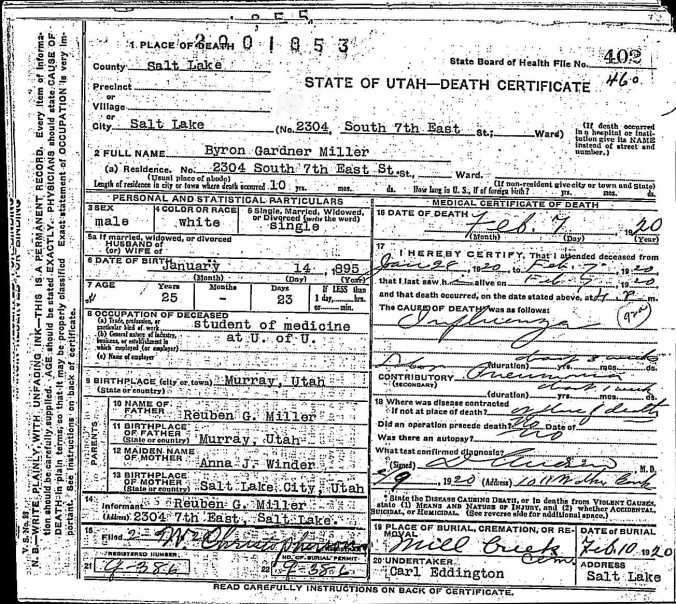 2001853
1 PLACE OF DEATH
State Board of Health File No. 402
County Salt Lake
460
STATE OF UTAH—DEATH CERTIFICATE
Precinct
or
Village
or
City Salt Lake (No. 2304, South 7th East St.; Ward)
(If death occurred in a hospital or institution give its NAME instead of street and number.)
2 FULL NAME Byron Gardner Miller
(a) Residence. No. 2304 South 7th East St. St., Ward.
(Usual place of abode) (If non-resident give city or town and State)
Length of residence in city or town where death occurred 10 yrs. mos. ds. How long in U. S., if of foreign birth? yrs. mos. ds.
PERSONAL AND STATISTICAL PARTICULARS
3 SEX male
4 COLOR OR RACE white
5 Single, Married, Widowed, or Divorced (write the word) single
5a If married, widowed, or divorced
HUSBAND of
(or) WIFE of
6 DATE OF BIRTH January 14 1895
(Month) (Day) (Year)
7 AGE Years 25 Months - Days 23 If LESS than 1 day, hrs. or min.
8 OCCUPATION OF DECEASED
(a) Trade, profession, or particular kind of work student of medicine
(b) General nature of industry, business, or establishment in which employed (or employer) at U. of U.
(c) Name of employer
9 BIRTHPLACE (city or town) Murray, Utah
(State or country)
PARENTS
10 NAME OF FATHER Reuben G. Miller
11 BIRTHPLACE OF FATHER (State or country) Murray, Utah
12 MAIDEN NAME OF MOTHER Anna J. Winder
13 BIRTHPLACE OF MOTHER (State or country) Salt Lake City, Utah
14 Informant Reuben G. Miller
(Address) 2304 7th East, Salt Lake.
15 Filed
REGISTERED NUMBER
21 9-386
NO. OF BURIAL PERMIT
22 9-386
MEDICAL CERTIFICATE OF DEATH
16 DATE OF DEATH Feb. 7 1920
(Month) (Day) (Year)
17 I HEREBY CERTIFY, That I attended deceased from
Jan 28, 1920 to Feb. 7, 1920
that I last saw h alive on Feb 7, 1920
and that death occurred, on the date stated above, at m.
The CAUSE OF DEATH was as follows:
Influenza
(duration) yrs. mos. ds.
CONTRIBUTORY Pneumonia
(SECONDARY)
(duration) yrs. mos. ds.
18 Where was disease contracted
If not at place of death? place of death
Did an operation precede death? No Date of
Was there an autopsy? No
What test confirmed diagnosis?
(Signed) M. D.
2/9, 1920 (Address)
*State the DISEASE CAUSING DEATH, or in deaths from VIOLENT CAUSES, state (1) MEANS AND NATURE OF INJURY, and (2) whether ACCIDENTAL, SUICIDAL, or HOMICIDAL. (See reverse side for additional space.)
19 PLACE OF BURIAL, CREMATION, OR REMOVAL Mill Creek Cem.
DATE OF BURIAL Feb 10 1920
20 UNDERTAKER Carl Eddington
ADDRESS Salt Lake
READ CAREFULLY INSTRUCTIONS ON BACK OF CERTIFICATE.
V. S. No. 
N. B.—WRITE PLAINLY, WITH UNFADING INK—THIS IS A PERMANENT RECORD. Every item of information should be carefully supplied. AGE should be stated EXACTLY. PHYSICIANS should state CAUSE OF DEATH in plain terms, so that it may be properly classified. Exact statement of OCCUPATION is very important. See instructions on back of certificate.